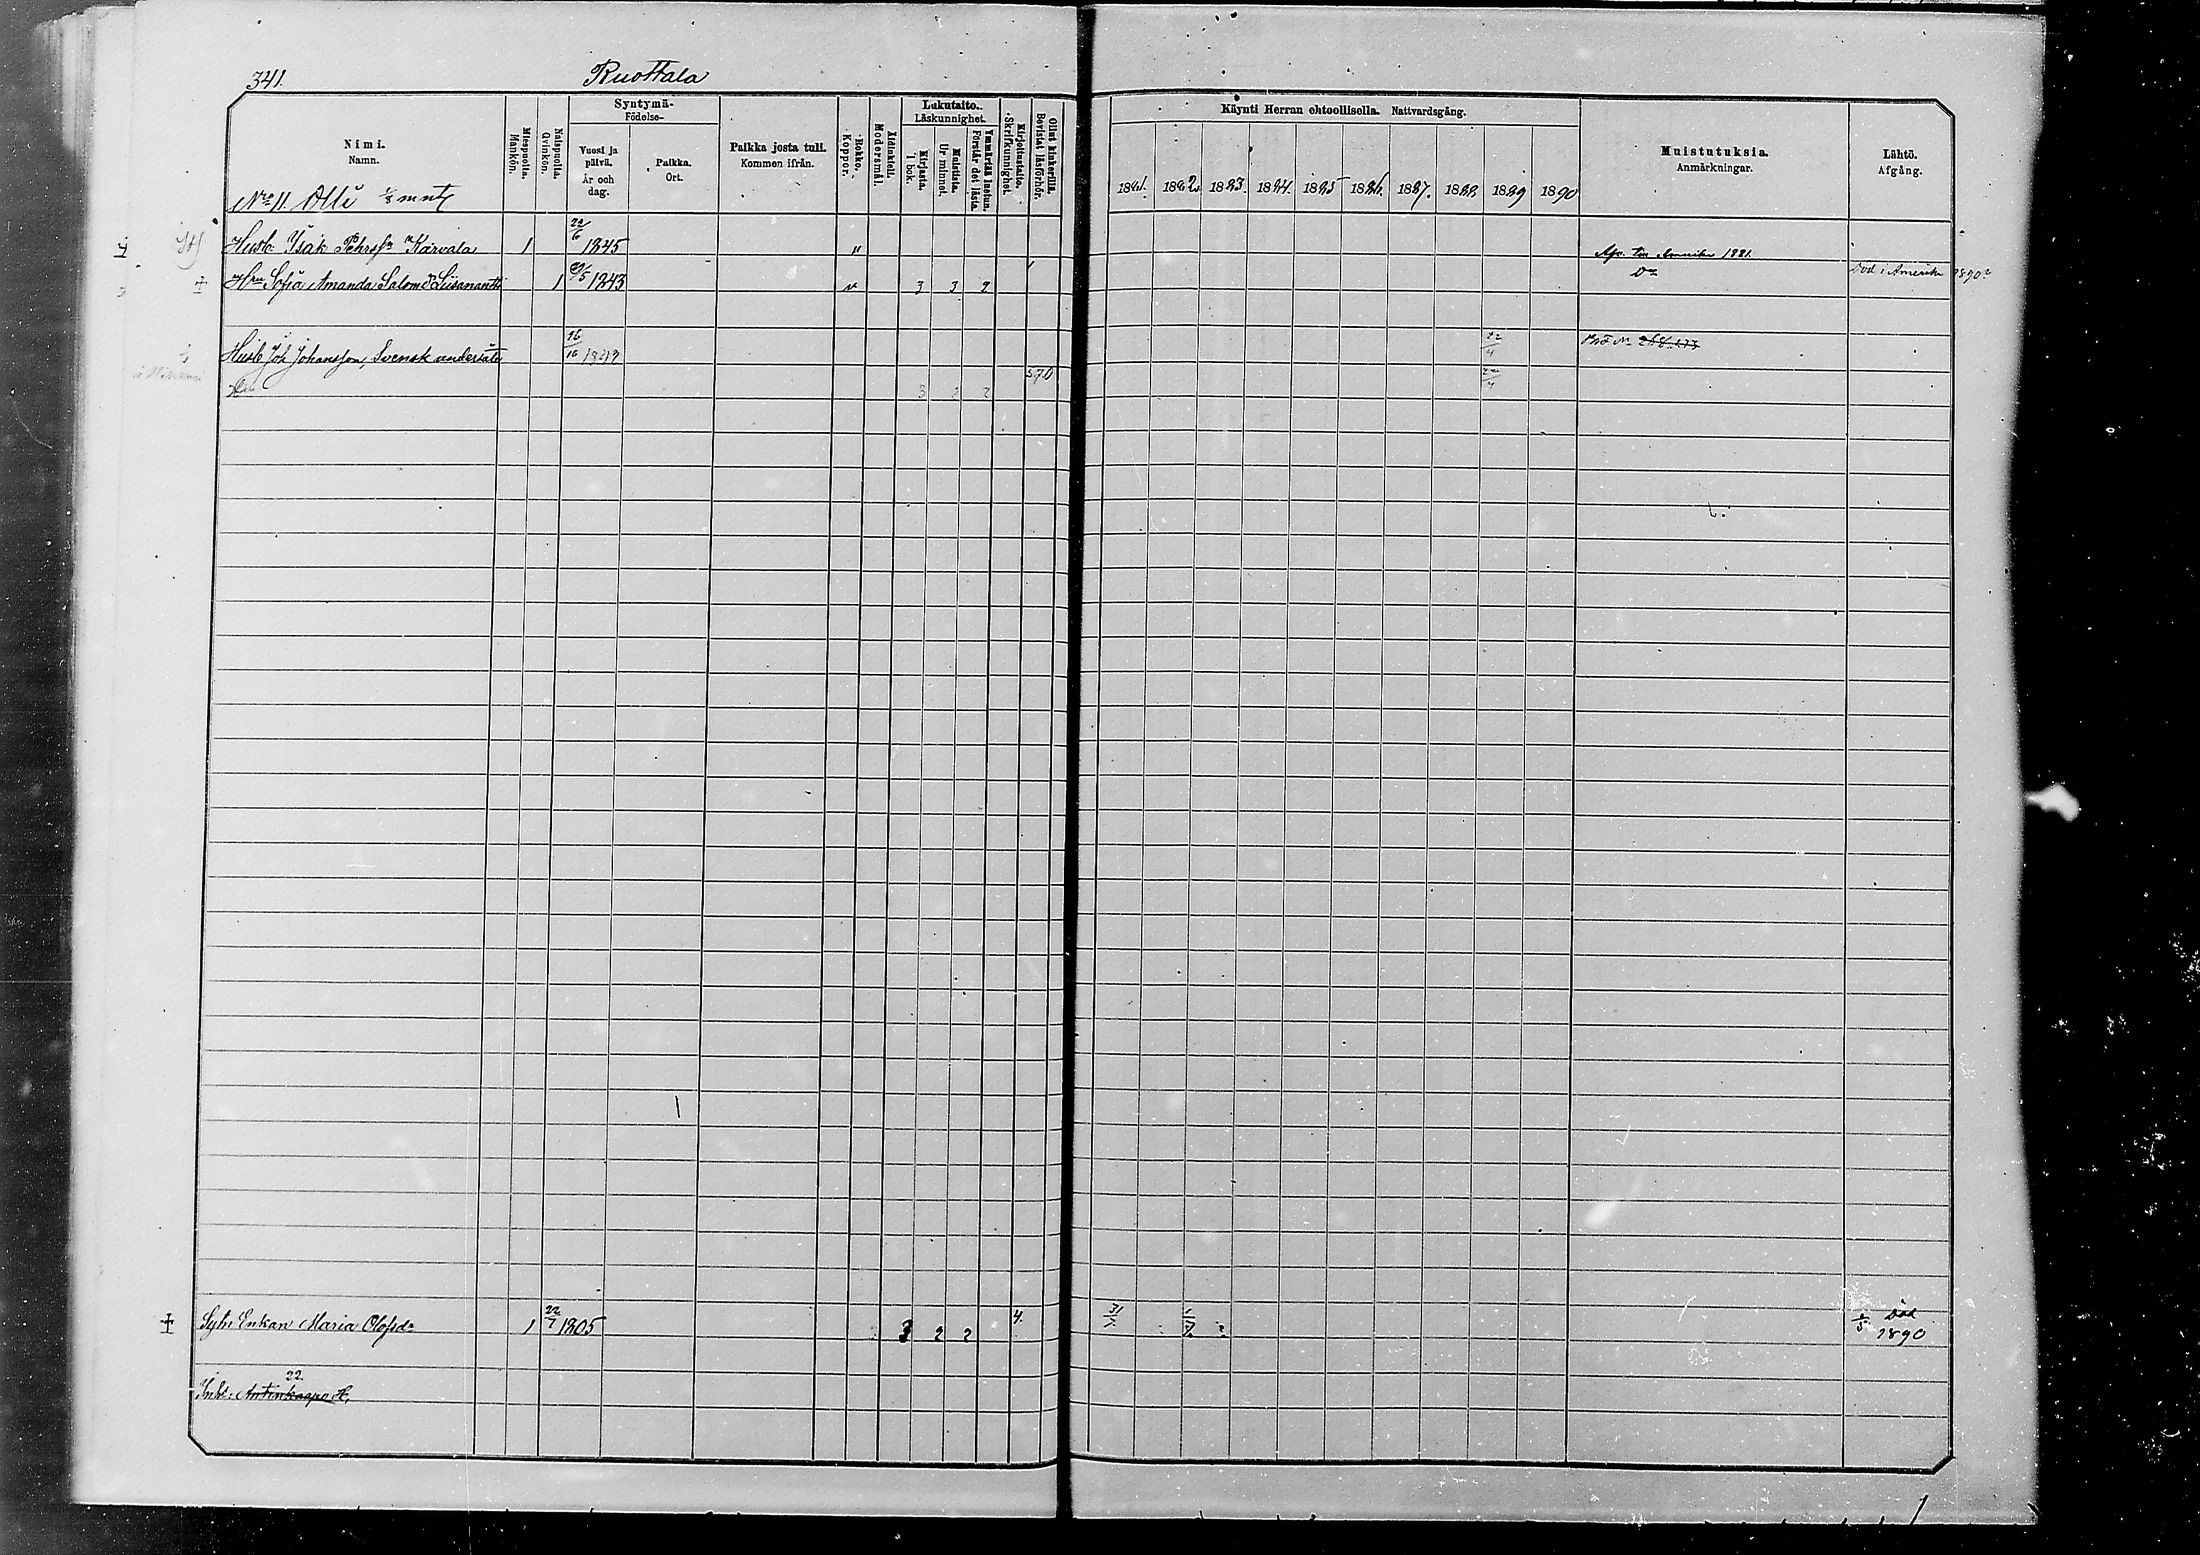 341.
Ruottala
Nimi.
Namn.
Miespuolia.
Mankön.
Naispuolia.
Qvinkön.
Syntymä-
Födelse-
Vuosi ja päivä.
År och dag.
Paikka.
Ort.
Paikka josta tuli.
Kommen ifrån.
Rokko.
Koppor.
Äidinkieli.
Modersmål.
Lukutaito.
Läskunnighet.
Kirjasta.
I bok.
Muistista.
Ur minnet.
Ymmärtää luetun.
Förstår det lästa.
Kirjoitustaito.
Skrifkunnighet.
Ollut kinkerillä.
Bevistat läsförhör.
Käynti Herran ehtoollisella. Nattvardsgång.
1881. 1882. 1883. 1884. 1885 1886. 1887. 1888. 1889 1890
Muistutuksia.
Anmärkningar.
Lähtö.
Afgång.
No 11 Olli 1/8 mntl
Husb. Isak Pehrss. Karvala 1 22/6 1845 " Afv. till Amerika 1881.
Hru Sofia Amanda Salomsdr Liisanantti 1 /5 1843 v 3 3 2 Do Död i Amerika 1890?
Husb Joh Johansson, Svensk undersåte 26/10 22/4
Hru 3 2 2 570 22/4
Sytn. Enkan Maria Olofsdr 1 22/7 1805 3 2 2 4. 31/7 Död 1890
22.
Inh: